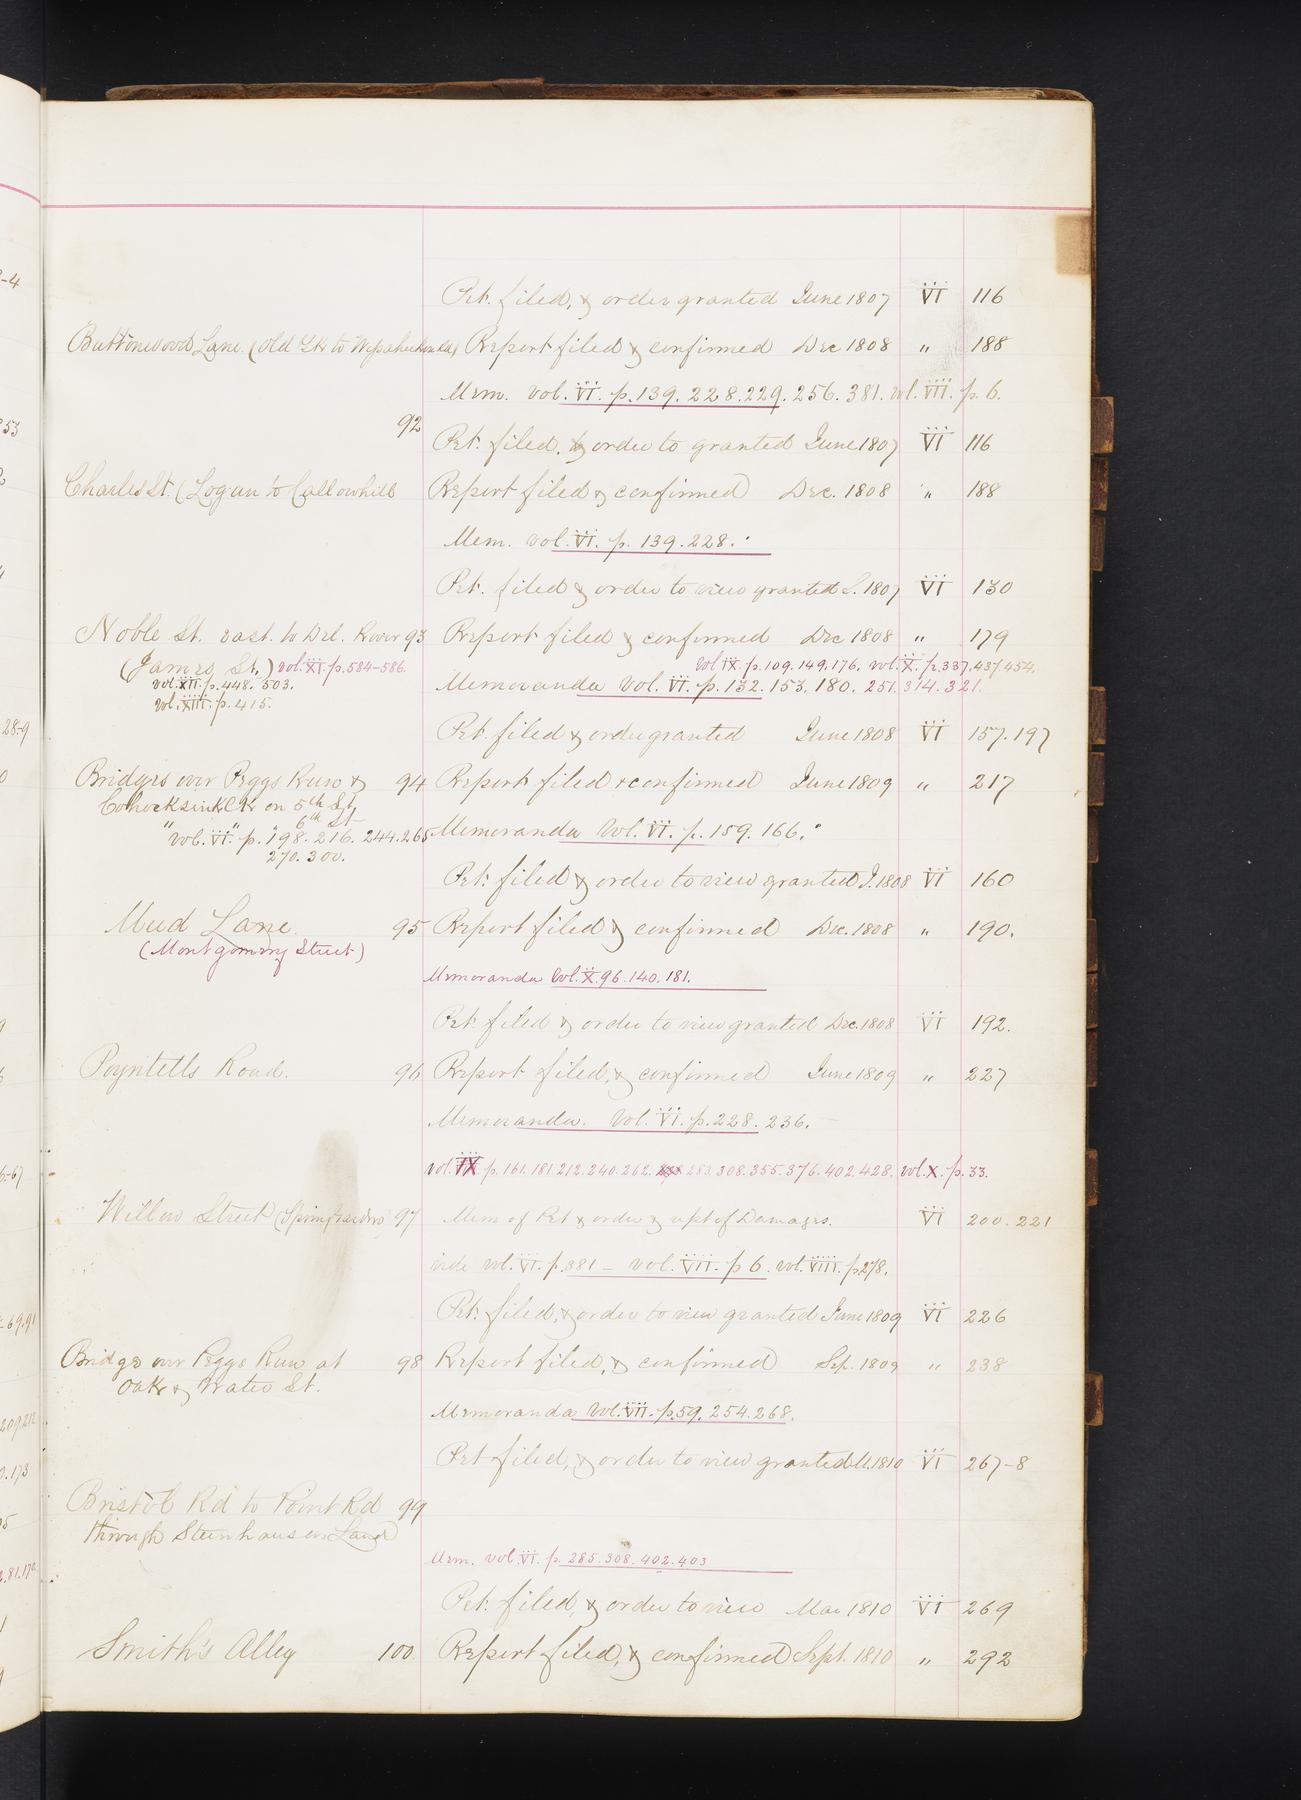 Pet. filed, & order granted June 1807 VI 116
Buttonwood Lane. (Old Yk to Report filed & confirmed Dec 1808 " 188
Mem. vol. VI. p. 139. 228. 229. 256. 381. vol. VII. p. 6.
92
Pet. filed, & order to granted June 1807 VI 116
Charles St. (Logan to Callowhill Report filed & confirmed Dec. 1808 " 188
Mem. vol. VI. p. 139. 228.
Pet. filed & order to view granted 1807 VI 130
Noble St. east. to Del. River 93 Report filed & confirmed Dec 1808 " 179
(James St.) vol. XI. p. 584-586. vol IX. p. 109. 149. 176. vol. X. p. 337. 437. 454.
vol. XII. p. 448. 503. Memoranda vol. VI. p. 132. 153. 180. 251. 314. 321.
vol. XIII. p. 415.
28-9 Pet. filed & order granted June 1808 VI 157. 197
Bridges over Peggs Run & 94 Report filed + confirmed June 1809 " 217
Cohocksink Ck on 5th St
" " " 6th St
vol. VI. p. 198. 216. 244. 265 Memoranda Vol. VI. p. 159. 166.
270. 300.
Pet. filed & order to view granted J. 1808 VI 160
Mud Lane. 95 Report filed & confirmed Dec. 1808 " 190.
(Montgomery Street)
Memoranda Vol. X. 96. 140. 181.
Pet. filed & order to view granted Dec. 1808 VI 192.
Poyntells Road. 96 Report filed, & confirmed June 1809 " 227
Memoranda. Vol. VI. p. 228. 236.
vol. IX p. 161. 181. 212. 240. 262. 283. 308. 355. 376. 402. 428. vol. X. p. 33.
Willow Street (Springgarden) 97 Mem of Pet & order & rept of Damages. VI 200. 221
vide vol. VI. p. 381 – vol. VII. p 6. vol. VIII. p. 278.
Pet. filed, & order to view granted June 1809 VI 226
Bridge over Peggs Run at 98 Report filed, & confirmed Sep. 1809 " 238
Oak & Water St.
Memoranda Vol. VII. p. 59. 254. 268.
Pet filed, & order to view granted M. 1810 VI 267-8
Bristol Rd to Point Rd 99
through Steinhauser Land
Mem. vol. VI. p. 285. 308. 402. 403
Pet. filed, & order to view Mar 1810 VI 269
Smith's Alley 100 Report filed, & confirmed Sept. 1810 " 292